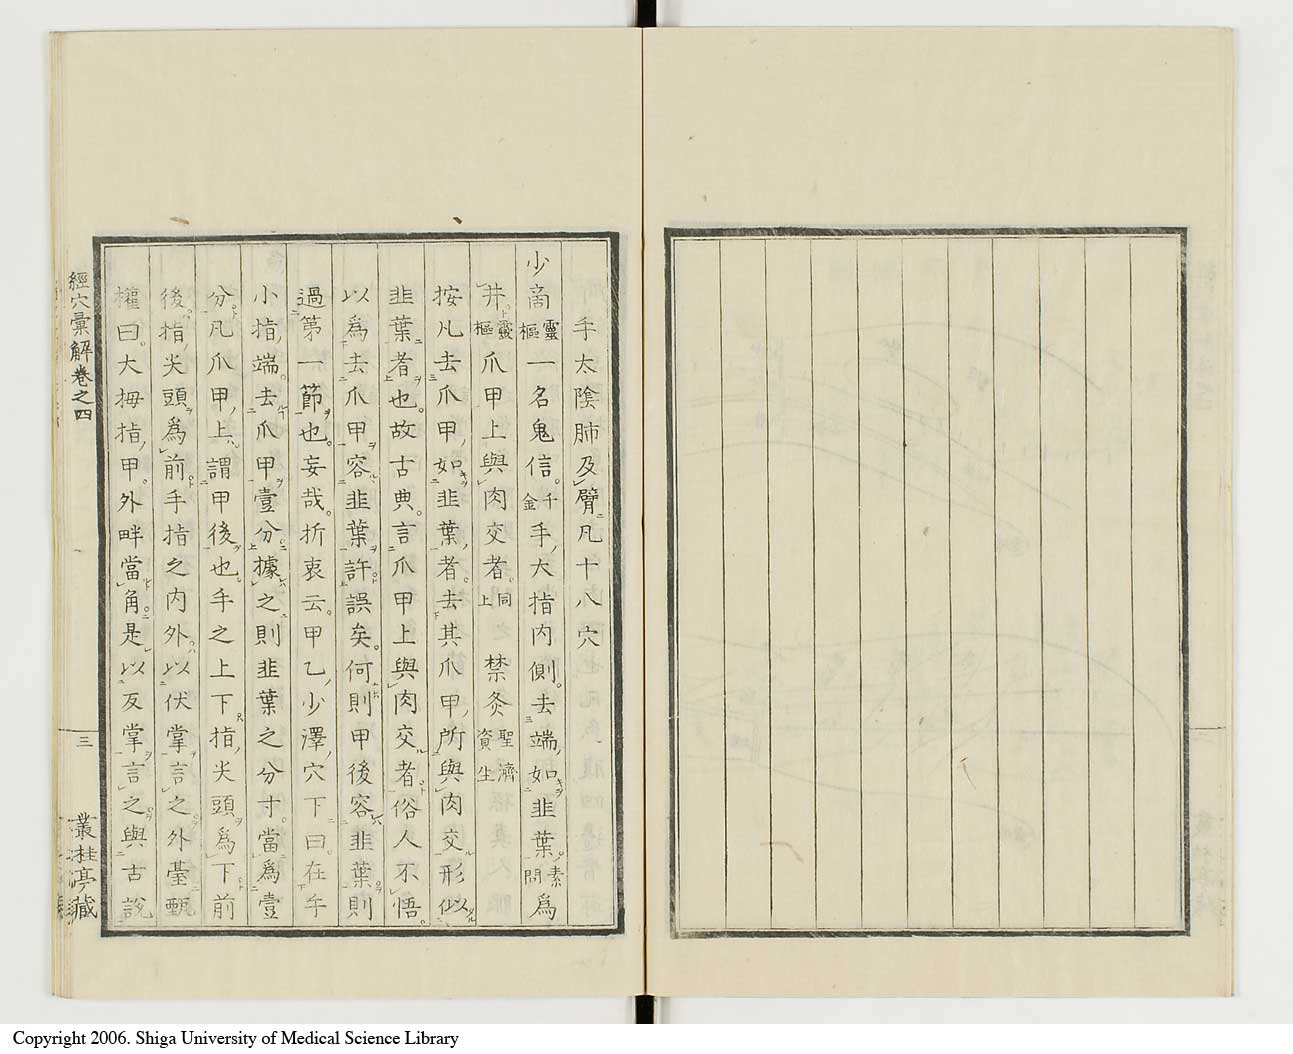 手太陰肺及臂凡十八穴
少商靈樞一名鬼信千金手大指内側去端如韭葉素問爲
井靈樞爪甲上與肉交者同上禁灸聖濟資生
按凡去爪甲如韭葉者去其爪甲所與肉交形似
韭葉者也故古典言爪甲上與肉交者俗人不悟
以爲去爪甲容韭葉許誤矣何則甲後容韭葉則
過第一節也妄哉折衷云甲乙少澤穴下曰在手
小指端去爪甲壹分據之則韭葉之分寸當爲壹
分凡爪甲上謂甲後也手之上下指尖頭爲下前
後指尖頭爲前手指之内外以伏掌言之外臺甄
權曰大拇指甲外畔當角是以反掌言之與古說
經穴彙解卷之四
三
叢桂亭藏
Copyright 2006. Shiga University of Medical Science Library